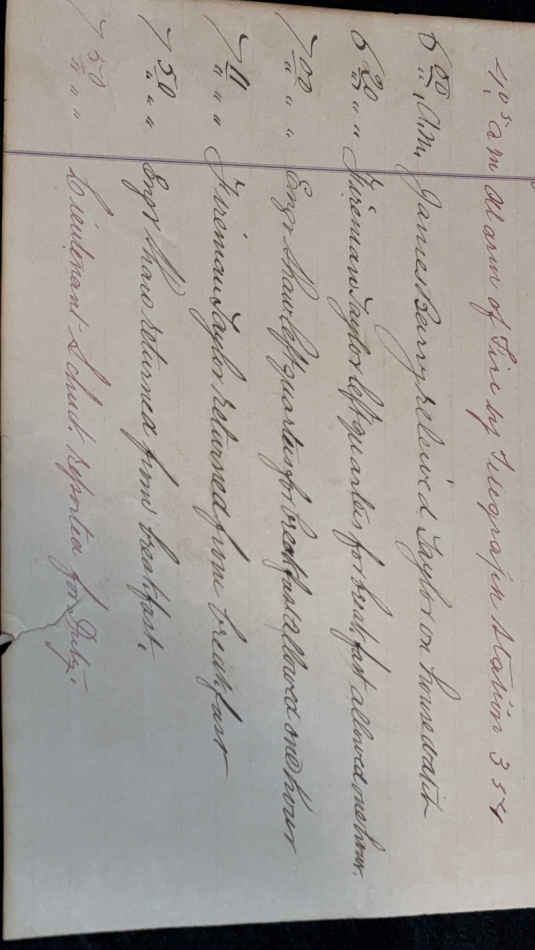 4.05 a.m. Alarm of Fire by Telegraph Station 354
6 00 " A.M. James Barry relieved Taylor on housewatch
6 20 " " " Fireman Taylor left quarters for breakfast allowed one hour.
7 00 " " " Engr Shaw left quarters for breakfast allowed one hour
7 11 " " " Fireman Taylor returned from breakfast
7 50 " " " Engr Shaw returned from breakfast.
7 50 " " " Lieutenant Schuck reported for Duty.